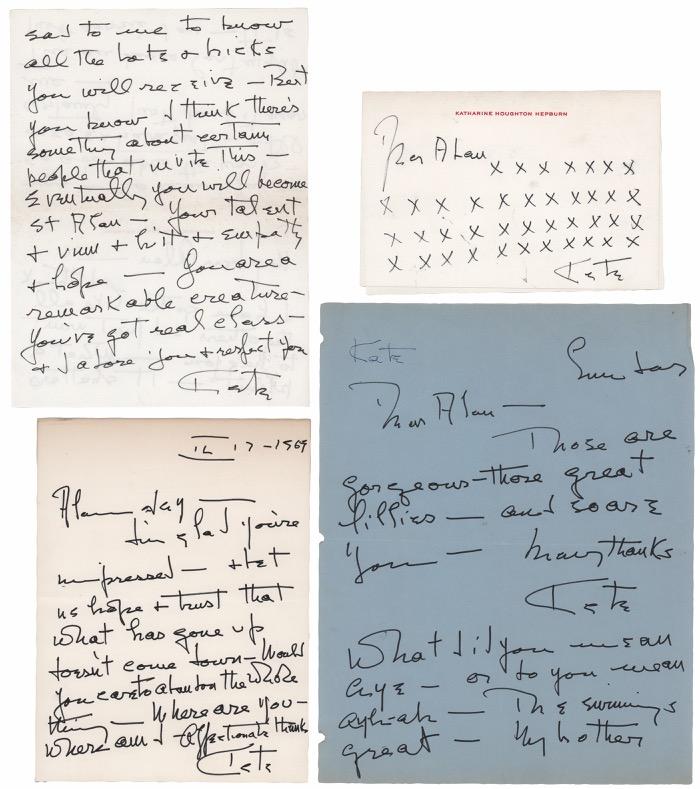 sad to me to know
all the bats & bricks
you will receive — But
you know I think there's
something about certain
people that invite this —
Eventually you will become
St Alan — Your talent
& vim & wit & empathy
& hope — You are a
remarkable creature —
You've got real class —
& I adore you & respect you
Kate
KATHARINE HOUGHTON HEPBURN
Dear Alan
X X X X X X X
X X X X X X X X X X
X X X X X X X X X X
X X X X X X X X X X
Kate
17 - 1969
Alan Jay —
I'm glad you're
impressed — & let
us hope & trust that
what has gone up
doesn't come down — Would
you care to abandon the whole
thing — Where are you —
Where am I — Affectionate thanks
Kate
Kate
Sunday
Dear Alan —
Those are
gorgeous — those great
lillies — and so are
you — Many thanks
Kate
What did you mean
— or do you mean
— The swimming's
great — Why bother